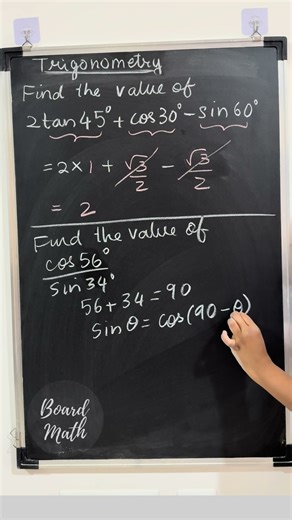 Trigonometry
Find the value of
2tan45° + cos30° - sin60°
= 2 × 1 + √3/2 - √3/2
= 2
Find the value of
cos56°/sin34°
56 + 34 = 90
sin θ = cos(90 - θ)
Board
Math